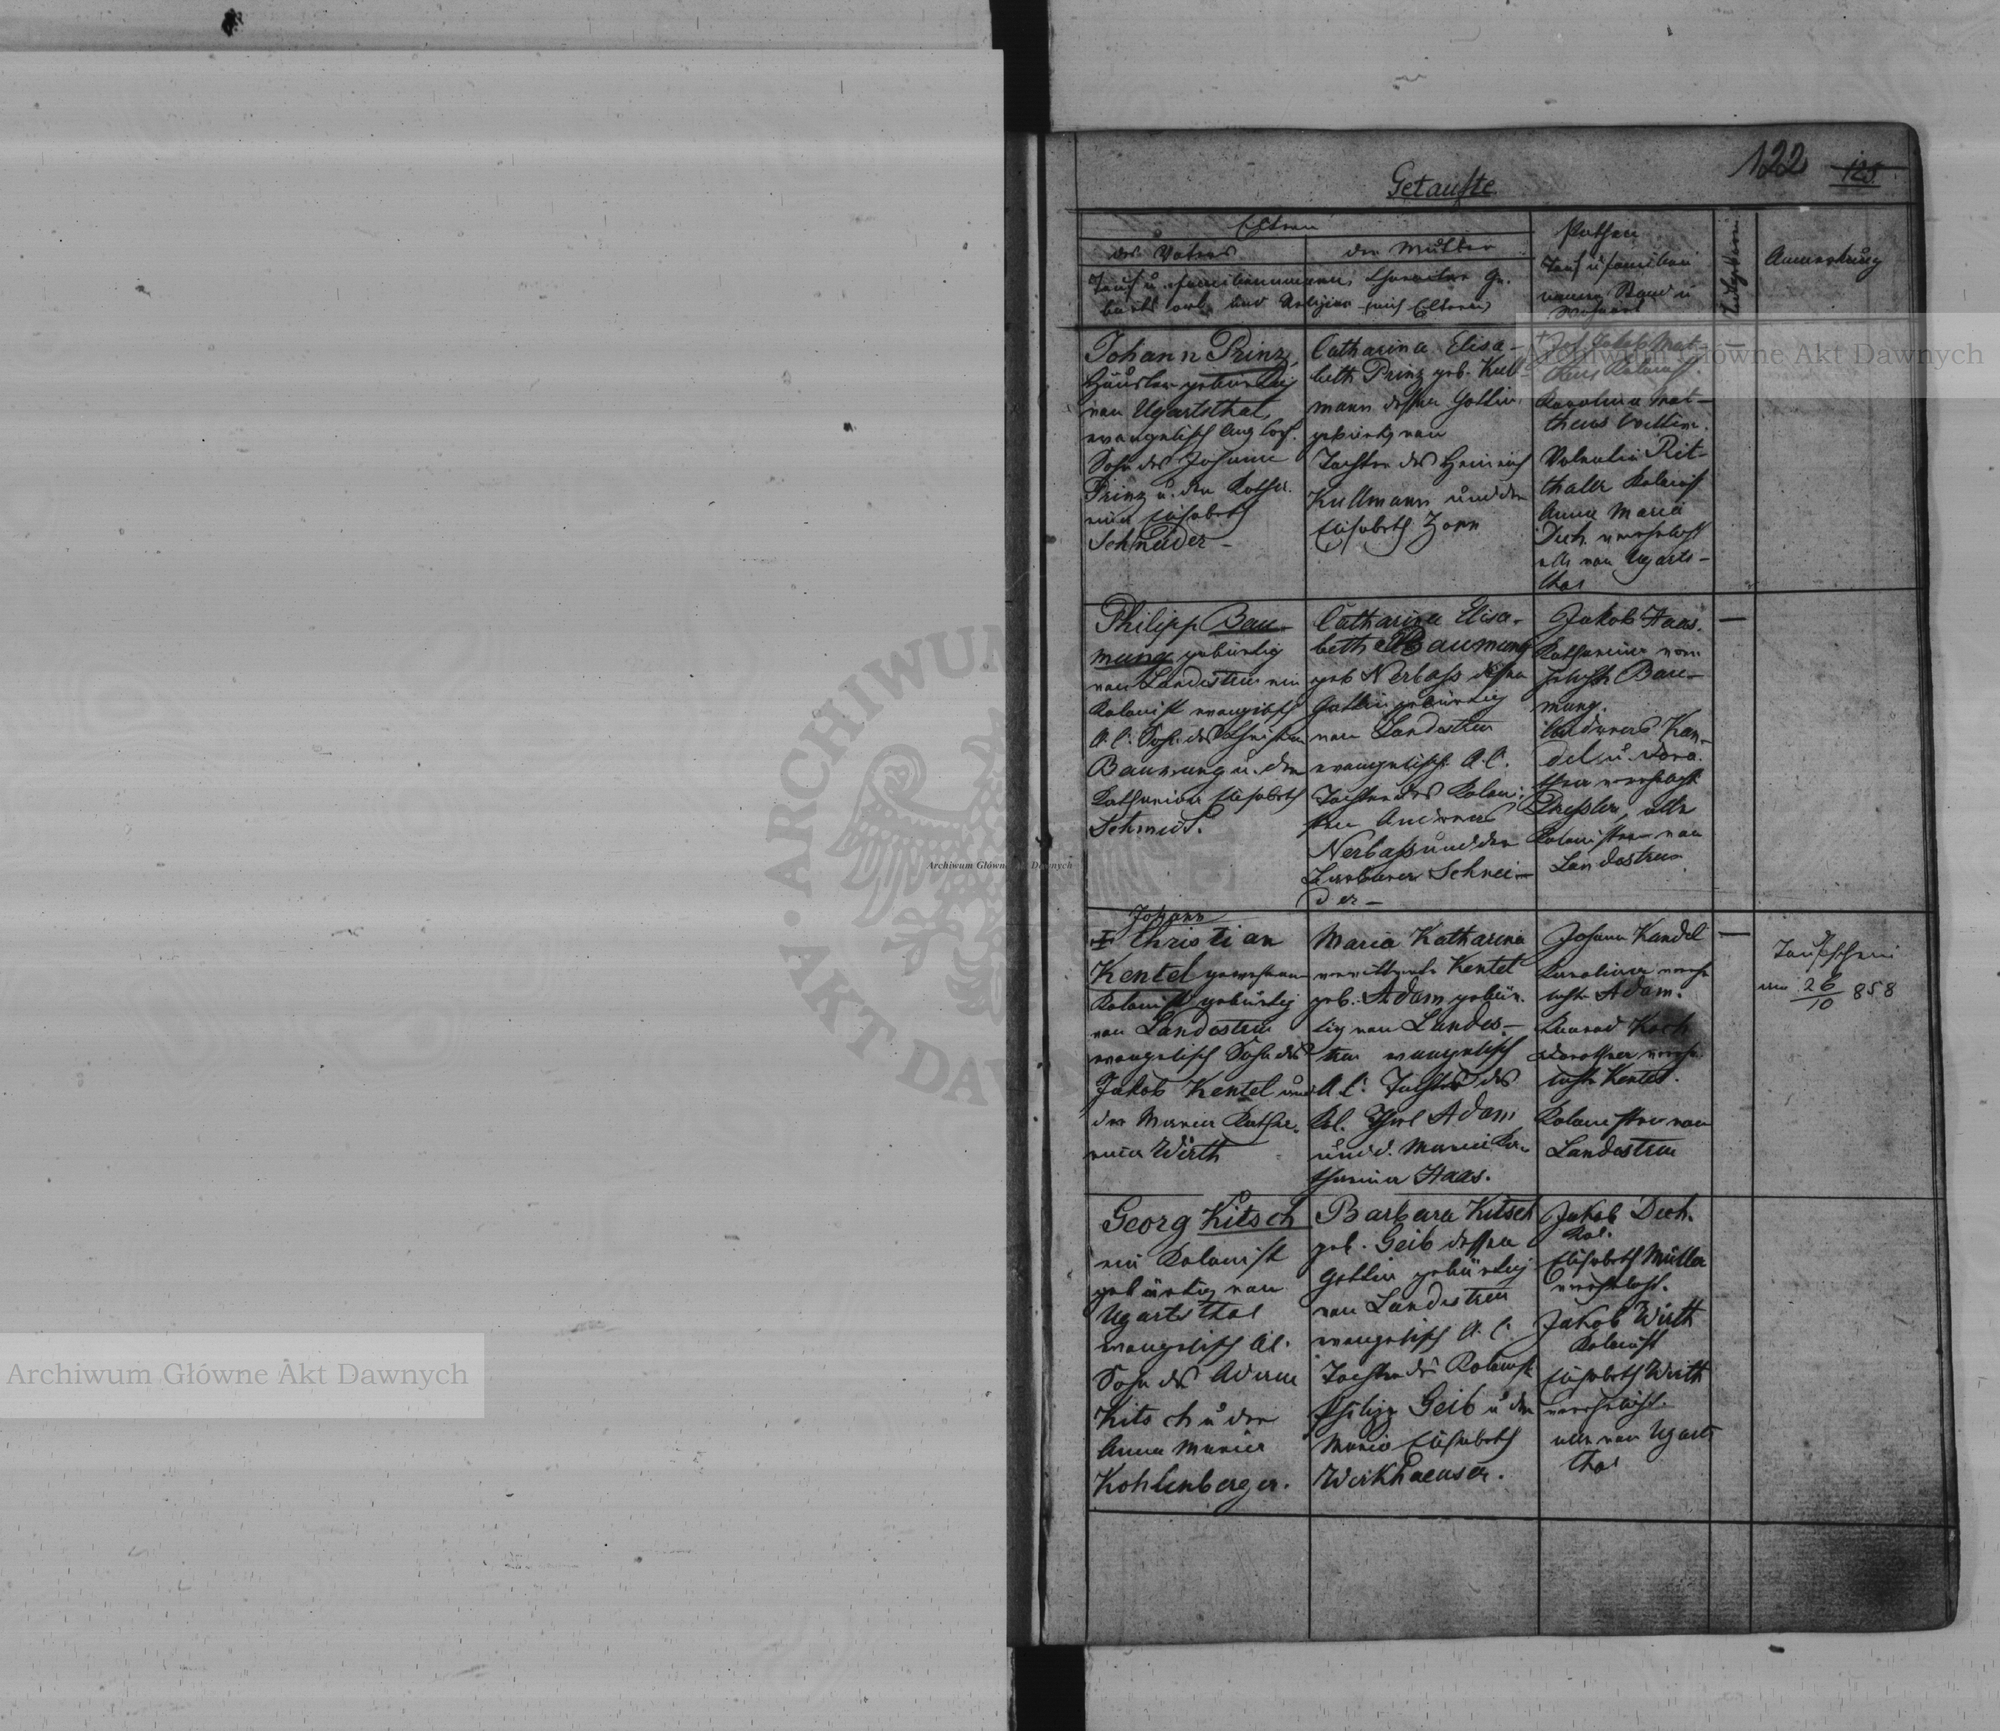 122
Getaufte
Eltern
des Vaters
der Mutter
Pathen
Anmerkung
Johann Prinz,
Häusler gebürtig
von Ugartsthal,
evangelisch Aug Conf.
Sohn des Johann
Prinz u. der Katha-
rina Elisabeth
Schneider –
Catharina Elisa-
beth Prinz geb. Kull-
mann dessen Gattin
gebürtig von
Tochter des Heinrich
Kullmann und der
Elisabeth Zorn
Karolina Mat-
theus Wittwe.
Valentin Rit-
thaler Kolonist
Anna Maria
Dech verehelicht
alle von Ugarts-
thal
Philipp Bau-
mung gebürtig
von Landestreu ein
Kolonist evangelisch
A. C. Sohn des Christian
Baumung u. der
Katharina Elisabeth
Schmidt.
Catharina Elisa-
beth Baumung
geb Nerbass dessen
Gattin gebürtig
von Landestreu
evangelisch A. C.
Tochter des Koloni-
sten Andreas
Nerbass und der
Barbara Schnei-
der –
Jakob Haas.
Katharina vere-
helicht Bau-
mung.
Andreas Kan-
del u. Doro-
thea verehelicht
Dressler, alle
Kolonisten von
Landestreu
Johann
Christian
Kentel gewesener
Kolonist gebürtig
von Landestreu
evangelisch Sohn des
Jakob Kentel und
der Maria Katha-
rina Wirth
Maria Katharina
verwittwete Kentel
geb. Adam gebür-
tig von Landes-
treu evangelisch
A. C. Tochter des
Kol. Adam
und d. Maria Ka-
tharina Haas.
Johann Kandel
Karolina verehe-
licht Adam.
Konrad Koch
Dorothea verehe-
licht Kentel.
Kolonisten von
Landestreu
Taufschein
26/10 858
Georg Kitsch
ein Kolonist
gebürtig von
Ugartsthal
evangelisch AC.
Sohn des Adam
Kitsch u der
Anna Maria
Kohlenberger.
Barbara Kitsch
geb. Geib dessen
Gattin gebürtig
von Landestreu
evangelisch A. C.
Tochter des Kolonist
Philipp Geib u der
Maria Elisabeth
Werkhaeuser.
Jakob Dech.
Kol.
Elisabeth Müller
verehelicht.
Jakob Wirth
Kolonist
Elisabeth Wirth
verehelicht.
alle von Ugarts
thal
Archiwum Główne Akt Dawnych
Archiwum Główne Akt Dawnych
Archiwum Główne Akt Dawnych